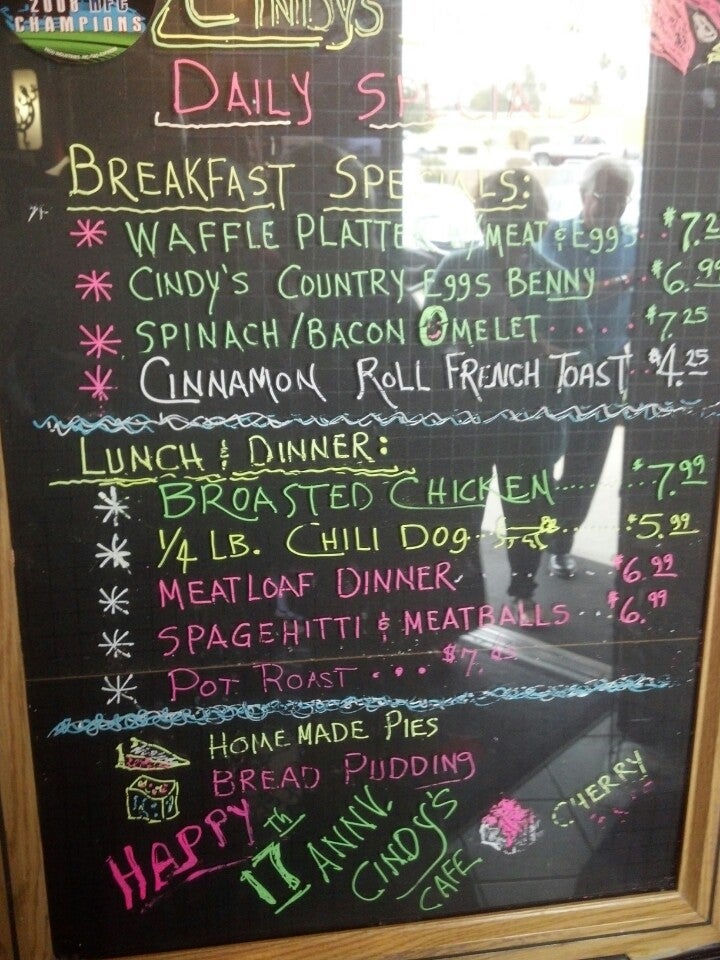 2008 NFC
CHAMPIONS
CINDY'S
DAILY SPECIALS
BREAKFAST SPECIALS:
* WAFFLE PLATTER W/MEAT & EGGS . . $7.2
* CINDY'S COUNTRY EGGS BENNY . . $6.99
* SPINACH/BACON OMELET . . . . . $7.25
* CINNAMON ROLL FRENCH TOAST $4.25
LUNCH & DINNER:
* BROASTED CHICKEN ........ $7.99
* 1/4 LB. CHILI DOG ... $5.99
* MEATLOAF DINNER ..... $6.99
* SPAGEHITTI & MEATBALLS ... $6.99
* POT ROAST . . . $7.
HOMEMADE PIES
BREAD PUDDING
CHERRY
HAPPY 17TH ANNV.
CINDY'S
CAFE